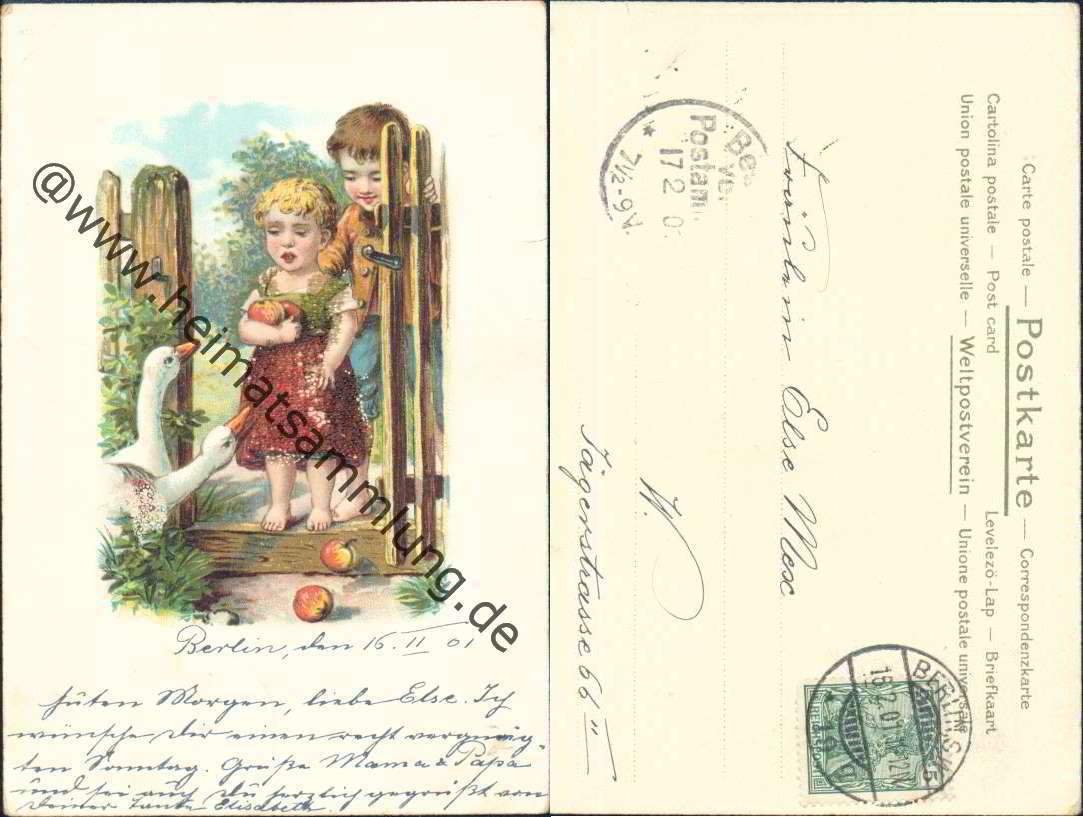 @www.heimatsammlung.de
Berlin, den 16. II 01
Guten Morgen, liebe Else. Ich
wünsche Dir einen recht vergnüg-
ten Sonntag. Grüße Mama & Papa
und sei auch Du herzlich gegrüßt von
Deiner Tante Elisabeth.
Carte postale — Postkarte — Correspondenzkarte
Cartolina postale — Post card Levelezö-Lap — Briefkaart
Union postale universelle — Weltpostverein — Unione postale universale
Fräulein Else Mesc
W.
Jägerstrasse 66 II
Bes
Postam
17 2 0
7½-9
BERLIN S.W.